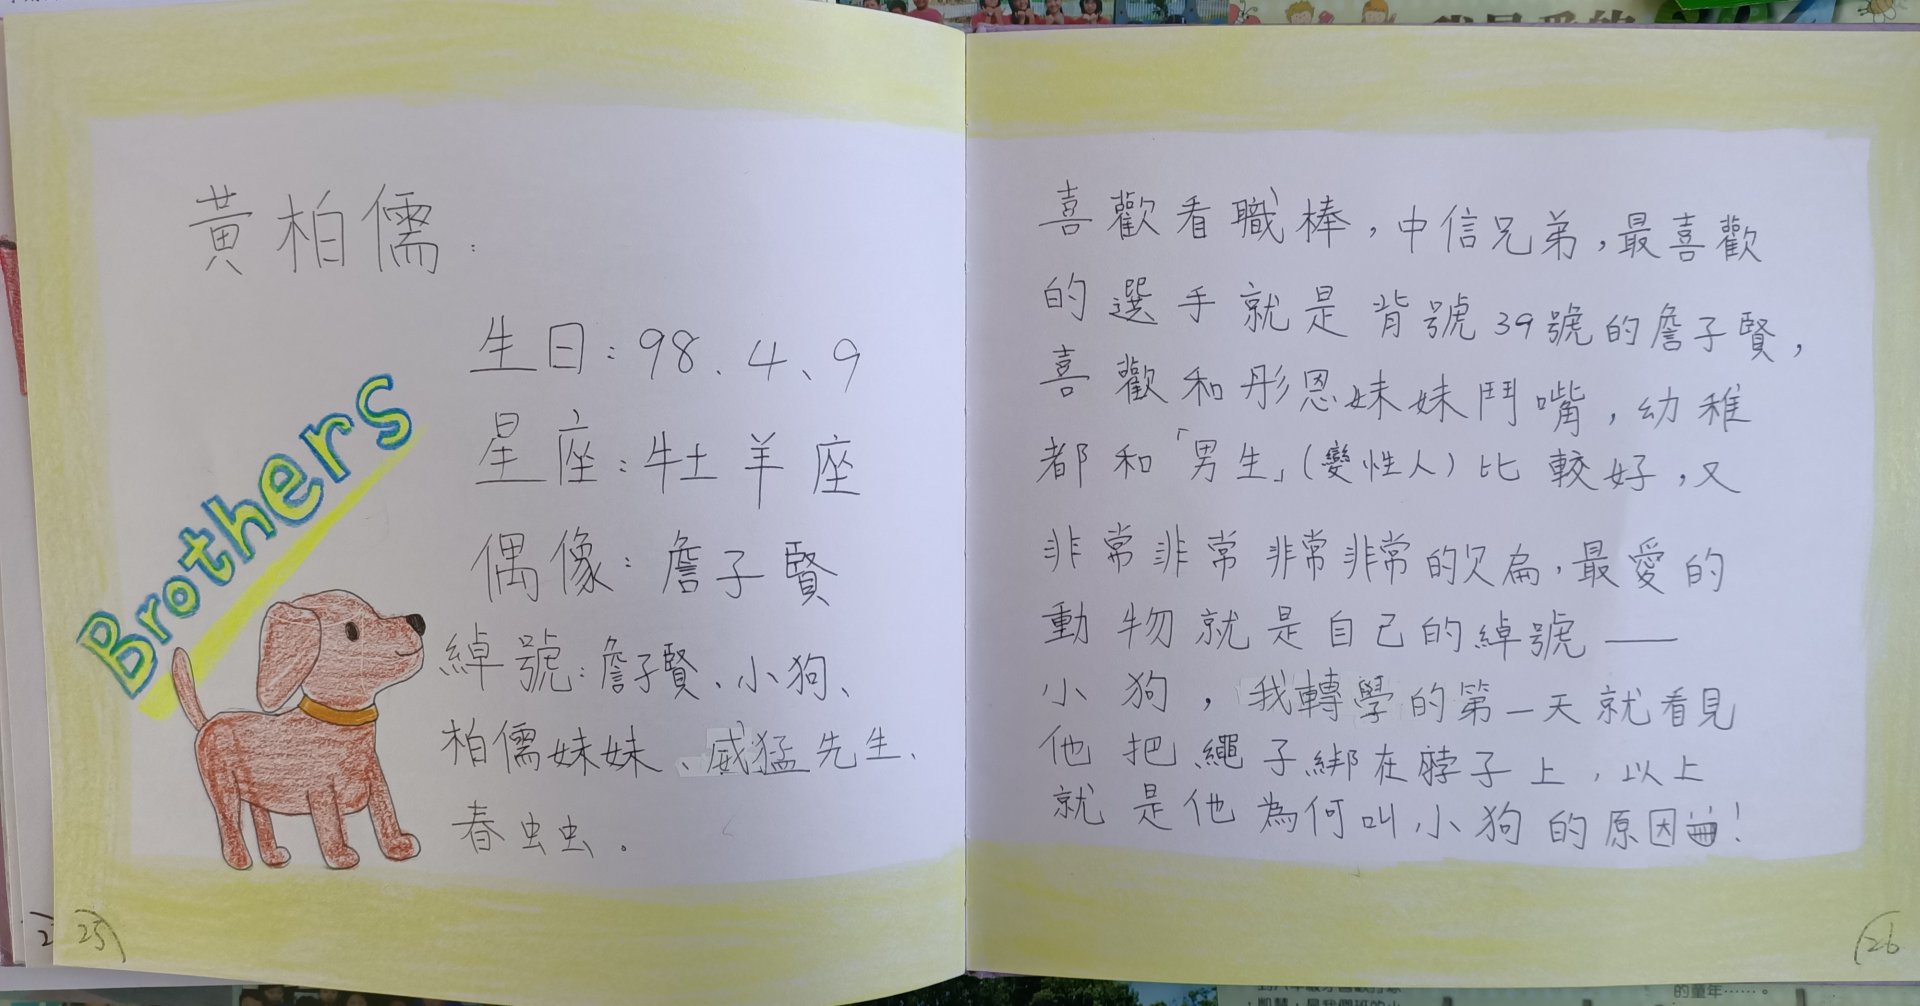 黃柏儒：
生日：98、4、9
星座：牡羊座
偶像：詹子賢
綽號：詹子賢、小狗、
柏儒妹妹、威猛先生、
春虫虫。
Brothers
25
喜歡看職棒，中信兄弟，最喜歡
的選手就是背號39號的詹子賢，
喜歡和彤恩妹妹鬥嘴，幼稚
都和「男生」（變性人）比較好，又
非常非常非常非常的欠扁，最愛的
動物就是自己的綽號——
小狗，我轉學的第一天就看見
他把繩子綁在脖子上，以上
就是他為何叫小狗的原因！
26
的童年……。